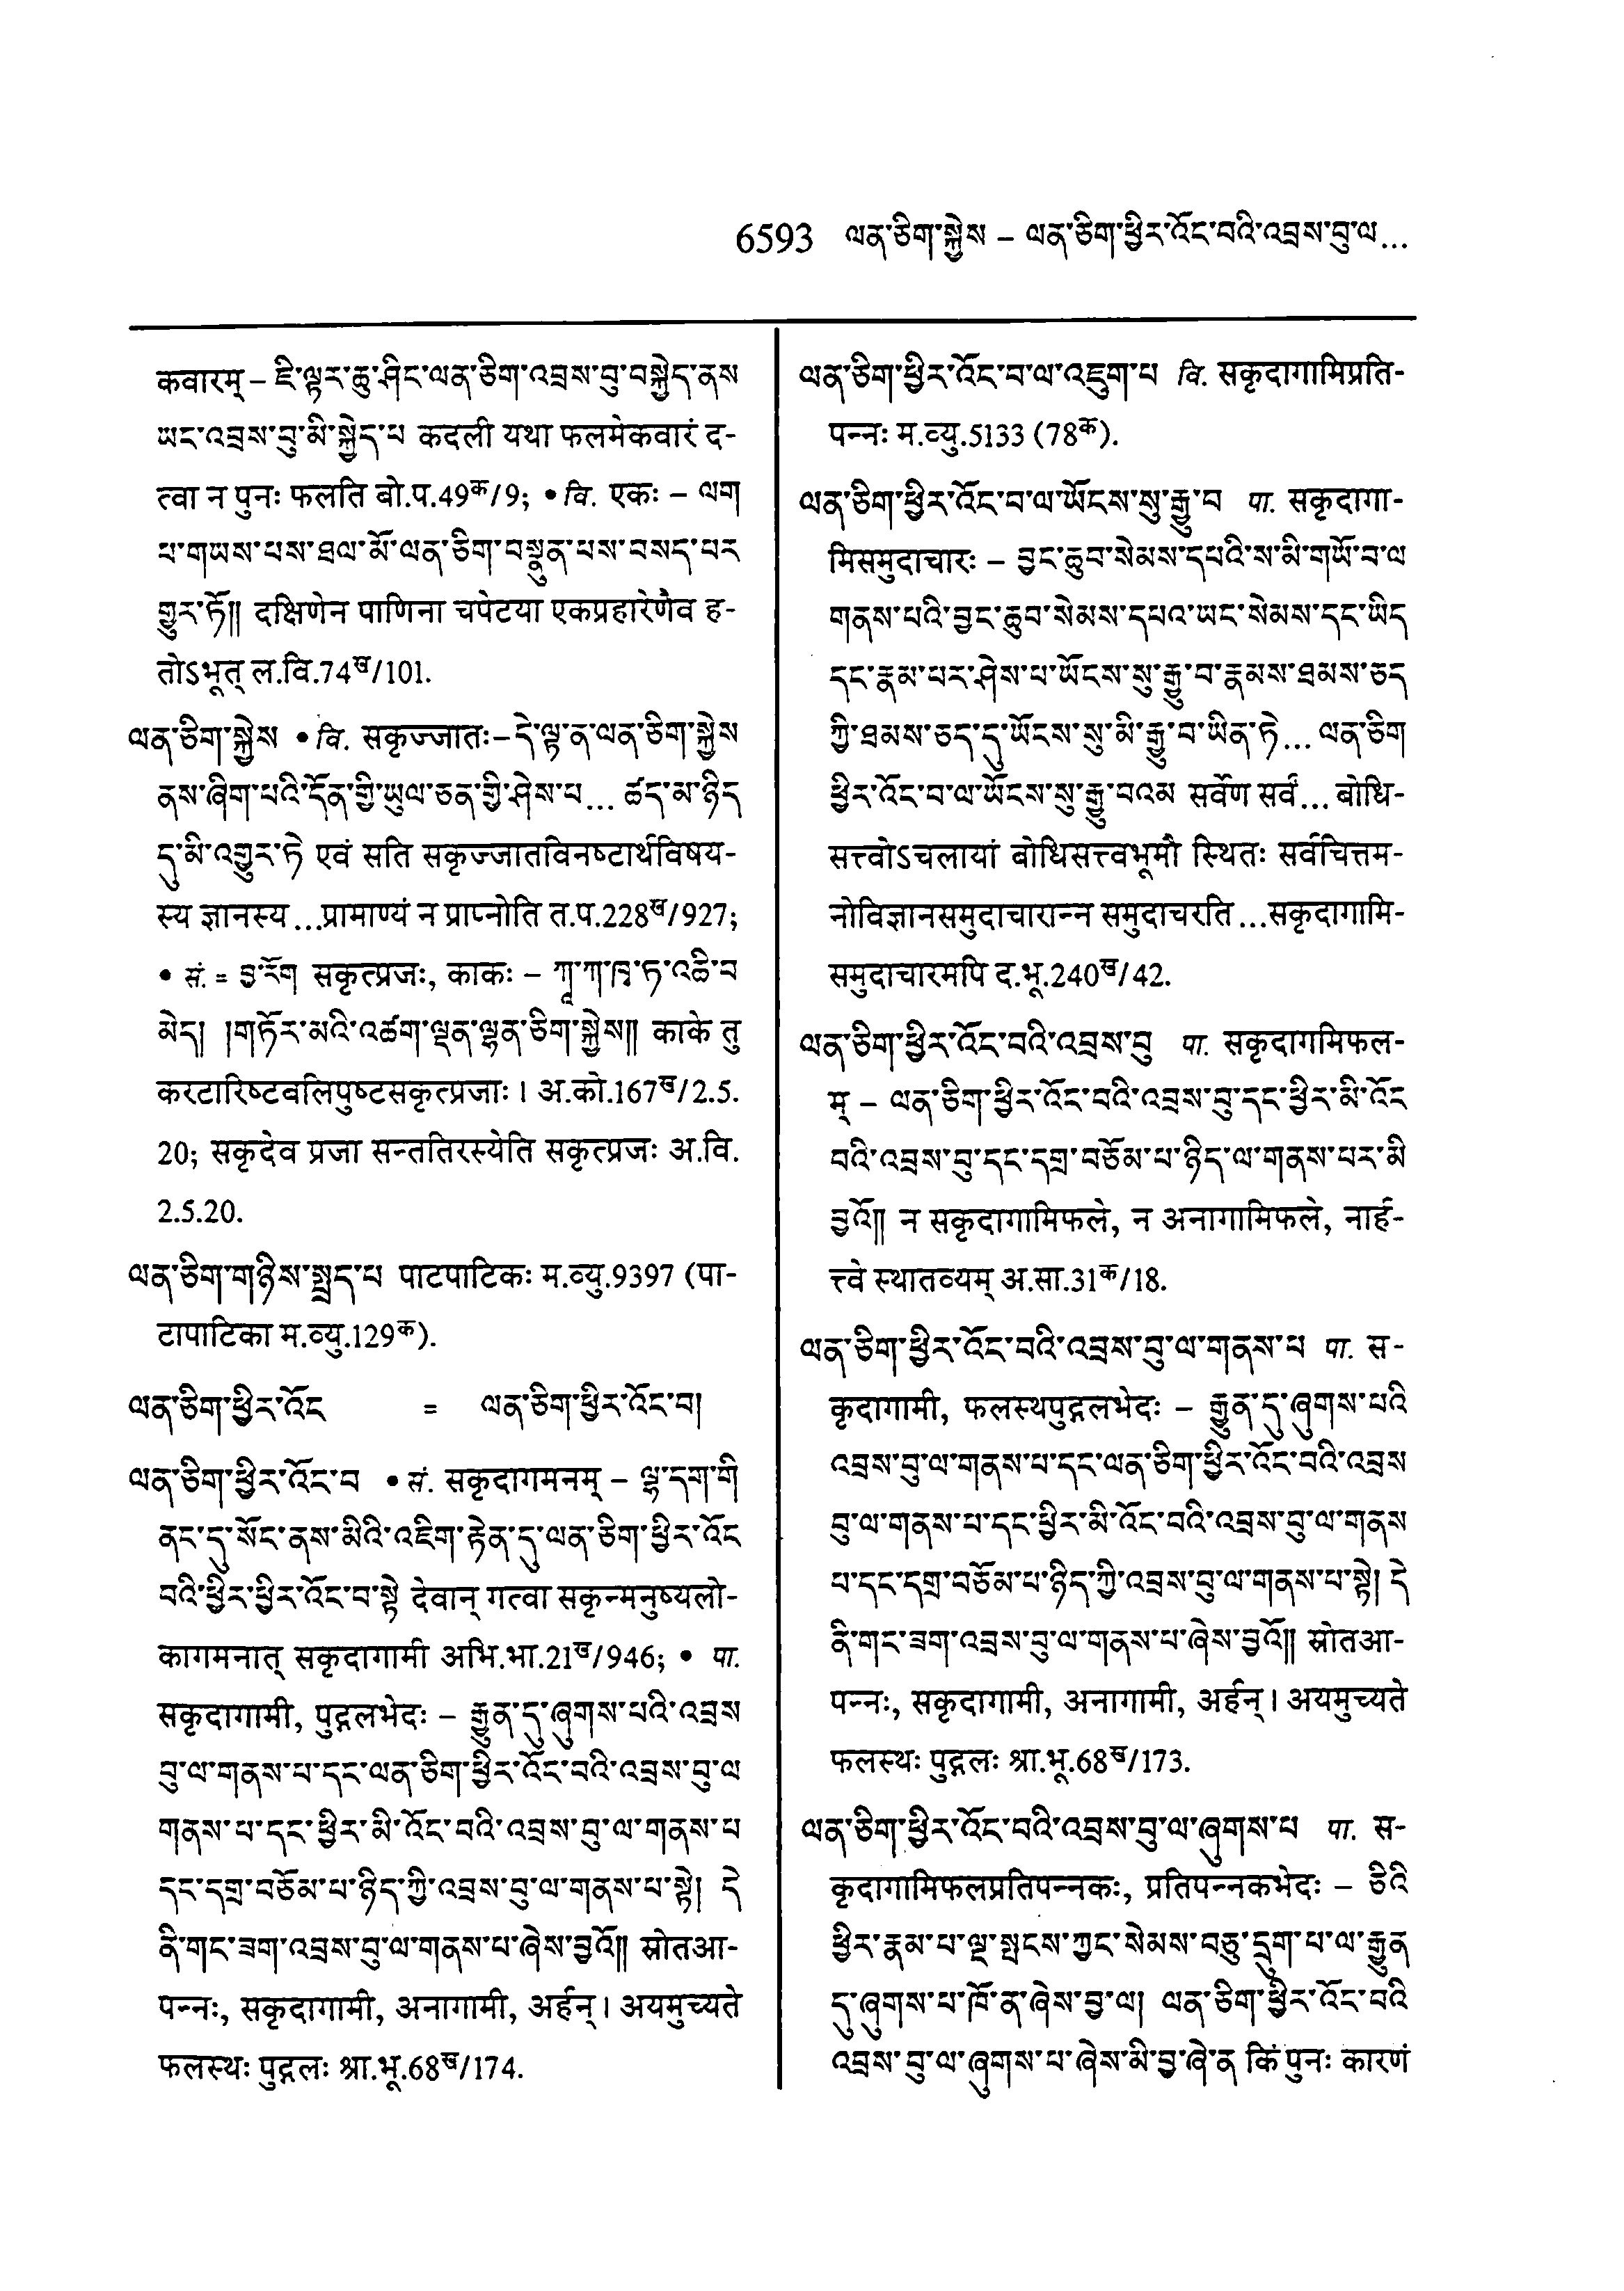 6593 ལན་ཅིག་སྐྱེས – ལན་ཅིག་ཕྱིར་འོང་བའི་འབྲས་བུ་ལ...
कवारम् – ཇི་ལྟར་ཆུ་ཤིང་ལན་ཅིག་འབྲས་བུ་བསྐྱེད་ནས
ཡང་འབྲས་བུ་མི་སྐྱེད་པ कदली यथा फलमेकवारं द-
त्वा न पुनः फलति बो.प.49क/9; • वि. एकः – ལག
པ་གཡས་པས་ཐལ་མོ་ལན་ཅིག་བསྣུན་པས་བསད་པར
གྱུར་ཏོ།། दक्षिणेन पाणिना चपेटया एकप्रहारेणैव ह-
तोऽभूत् ल.वि.74ख/101.
ལན་ཅིག་སྐྱེས • वि. सकृज्जातः–དེ་ལྟ་ན་ལན་ཅིག་སྐྱེས
ནས་ཞིག་པའི་དོན་གྱི་ཡུལ་ཅན་གྱི་ཤེས་པ... ཚད་མ་ཉིད
དུ་མི་འགྱུར་ཏེ एवं सति सकृज्जातविनष्टार्थविषय-
स्य ज्ञानस्य ...प्रामाण्यं न प्राप्नोति त.प.228ख/927;
• सं. = བྱ་རོག सकृत्प्रजः, काकः – ཀཱ་ཀ་ཁ་ཏ་འཆི་བ
མེད། །གཏོར་མའི་འཚག་ལྡན་ལྷན་ཅིག་སྐྱེས།། काके तु
करटारिष्टवलिपुष्टसकृत्प्रजाः । अ.को.167ख/2.5.
20; सकृदेव प्रजा सन्ततिरस्येति सकृत्प्रजः अ.वि.
2.5.20.
ལན་ཅིག་གཉིས་སྤྲད་པ पाटपाटिकः म.व्यु.9397 (पा-
टापाटिका म.व्यु.129क).
ལན་ཅིག་ཕྱིར་འོང = ལན་ཅིག་ཕྱིར་འོང་བ།
ལན་ཅིག་ཕྱིར་འོང་བ • सं. सकृदागमनम् – ལྷ་དག་གི
ནང་དུ་སོང་ནས་མིའི་འཇིག་རྟེན་དུ་ལན་ཅིག་ཕྱིར་འོང
བའི་ཕྱིར་ཕྱིར་འོང་བ་སྟེ देवान् गत्वा सकृन्मनुष्यलो-
कागमनात् सकृदागामी अभि.भा.21ख/946; • पा.
सकृदागामी, पुद्गलभेदः – རྒྱུན་དུ་ཞུགས་པའི་འབྲས
བུ་ལ་གནས་པ་དང་ལན་ཅིག་ཕྱིར་འོང་བའི་འབྲས་བུ་ལ
གནས་པ་དང་ཕྱིར་མི་འོང་བའི་འབྲས་བུ་ལ་གནས་པ
དང་དགྲ་བཅོམ་པ་ཉིད་ཀྱི་འབྲས་བུ་ལ་གནས་པ་སྟེ། དེ
ནི་གང་ཟག་འབྲས་བུ་ལ་གནས་པ་ཞེས་བྱའོ།། स्रोतआ-
पन्नः, सकृदागामी, अनागामी, अर्हन् । अयमुच्यते
फलस्थः पुद्गलः श्रा.भू.68ख/174.
ལན་ཅིག་ཕྱིར་འོང་བ་ལ་འཇུག་པ वि. सकृदागामिप्रति-
पन्नः म.व्यु.5133 (78क).
ལན་ཅིག་ཕྱིར་འོང་བ་ལ་ཡོངས་སུ་རྒྱུ་བ पा. सकृदागा-
मिसमुदाचारः – བྱང་ཆུབ་སེམས་དཔའི་ས་མི་གཡོ་བ་ལ
གནས་པའི་བྱང་ཆུབ་སེམས་དཔའ་ཡང་སེམས་དང་ཡིད
དང་རྣམ་པར་ཤེས་པ་ཡོངས་སུ་རྒྱུ་བ་རྣམས་ཐམས་ཅད
ཀྱི་ཐམས་ཅད་དུ་ཡོངས་སུ་མི་རྒྱུ་བ་ཡིན་ཏེ... ལན་ཅིག
ཕྱིར་འོང་བ་ལ་ཡོངས་སུ་རྒྱུ་བའམ सर्वेण सर्वं... बोधि-
सत्त्वोऽचलायां बोधिसत्त्वभूमौ स्थितः सर्वचित्तम-
नोविज्ञानसमुदाचारान्न समुदाचरति ...सकृदागामि-
समुदाचारमपि द.भू.240ख/42.
ལན་ཅིག་ཕྱིར་འོང་བའི་འབྲས་བུ पा. सकृदागमिफल-
म् – ལན་ཅིག་ཕྱིར་འོང་བའི་འབྲས་བུ་དང་ཕྱིར་མི་འོང
བའི་འབྲས་བུ་དང་དགྲ་བཅོམ་པ་ཉིད་ལ་གནས་པར་མི
བྱའོ།། न सकृदागामिफले, न अनागामिफले, नार्ह-
त्त्वे स्थातव्यम् अ.सा.31क/18.
ལན་ཅིག་ཕྱིར་འོང་བའི་འབྲས་བུ་ལ་གནས་པ पा. स-
कृदागामी, फलस्थपुद्गलभेदः – རྒྱུན་དུ་ཞུགས་པའི
འབྲས་བུ་ལ་གནས་པ་དང་ལན་ཅིག་ཕྱིར་འོང་བའི་འབྲས
བུ་ལ་གནས་པ་དང་ཕྱིར་མི་འོང་བའི་འབྲས་བུ་ལ་གནས
པ་དང་དགྲ་བཅོམ་པ་ཉིད་ཀྱི་འབྲས་བུ་ལ་གནས་པ་སྟེ། དེ
ནི་གང་ཟག་འབྲས་བུ་ལ་གནས་པ་ཞེས་བྱའོ།། स्रोतआ-
पन्नः, सकृदागामी, अनागामी, अर्हन् । अयमुच्यते
फलस्थः पुद्गलः श्रा.भू.68ख/173.
ལན་ཅིག་ཕྱིར་འོང་བའི་འབྲས་བུ་ལ་ཞུགས་པ पा. स-
कृदागामिफलप्रतिपन्नकः, प्रतिपन्नकभेदः – ཅིའི
ཕྱིར་རྣམ་པ་ལྔ་སྤངས་ཀྱང་སེམས་བཅུ་དྲུག་པ་ལ་རྒྱུན
དུ་ཞུགས་པ་ཁོ་ན་ཞེས་བྱ་ལ། ལན་ཅིག་ཕྱིར་འོང་བའི
འབྲས་བུ་ལ་ཞུགས་པ་ཞེས་མི་བྱ་ཞེ་ན किं पुनः कारणं